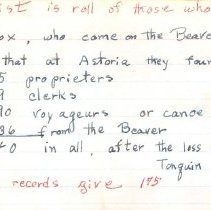 ist is roll of those who
ox, who came on the Beaver
that at Astoria they foun
5 proprieters
9 clerks
90 voyageurs or canoe
36 from the Beaver
40 in all, after the loss
Tonquin
records give 175